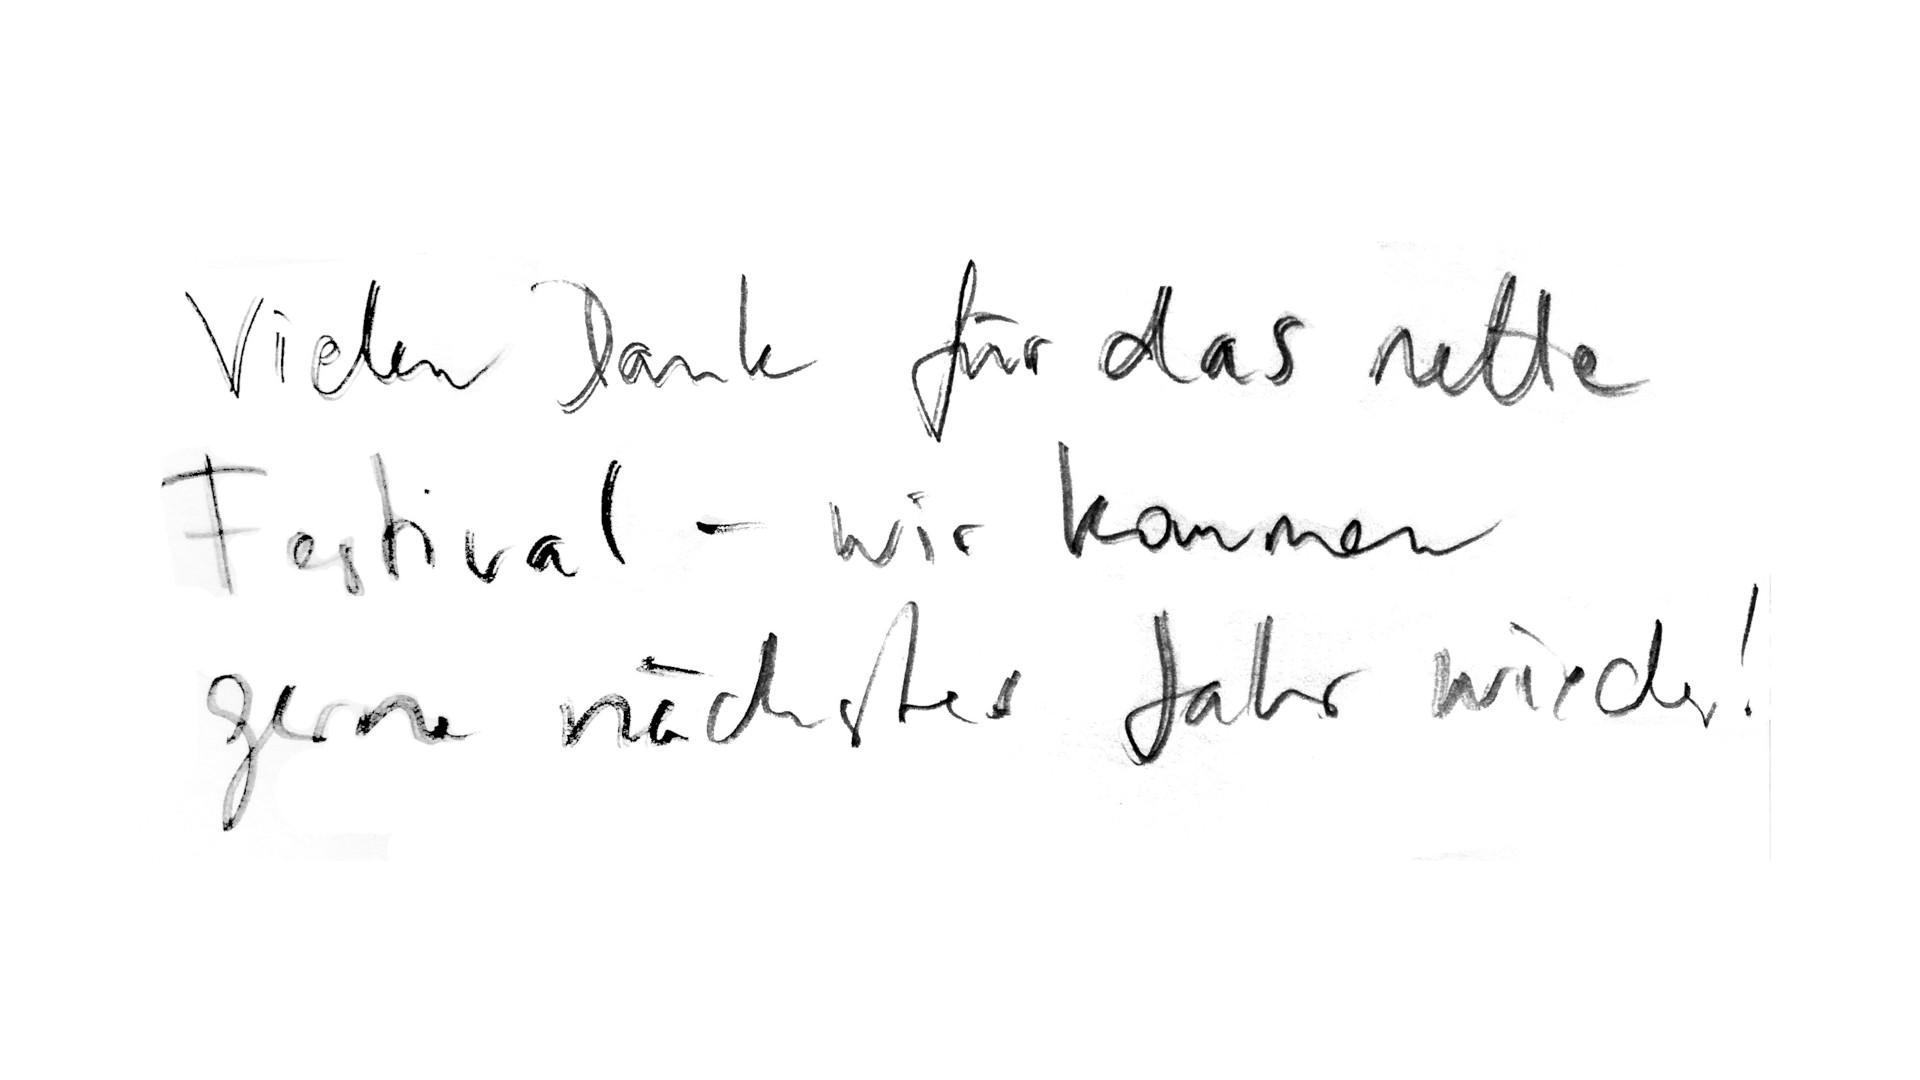 Vielen Dank für das nette
Festival – wir kommen
gerne nächstes Jahr wieder!